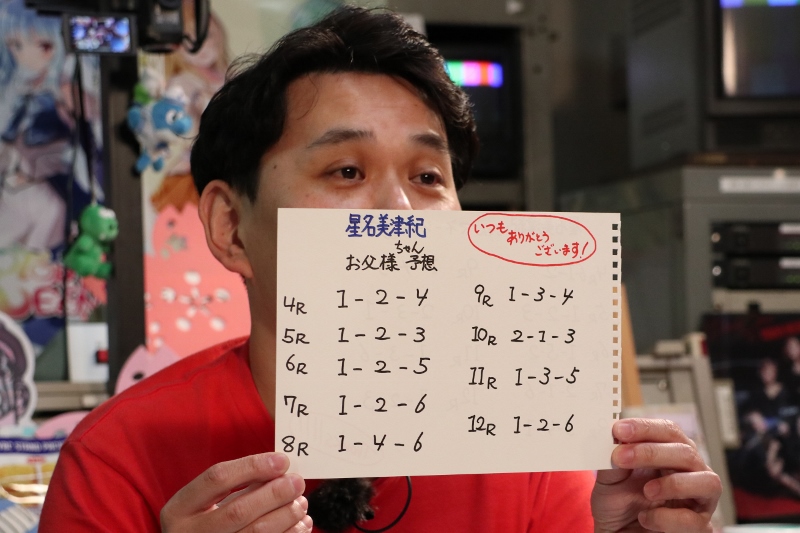 星名美津紀
ちゃん
お父様 予想
いつも
ありがとう
ございます!
4R 1-2-4
5R 1-2-3
6R 1-2-5
7R 1-2-6
8R 1-4-6
9R 1-3-4
10R 2-1-3
11R 1-3-5
12R 1-2-6